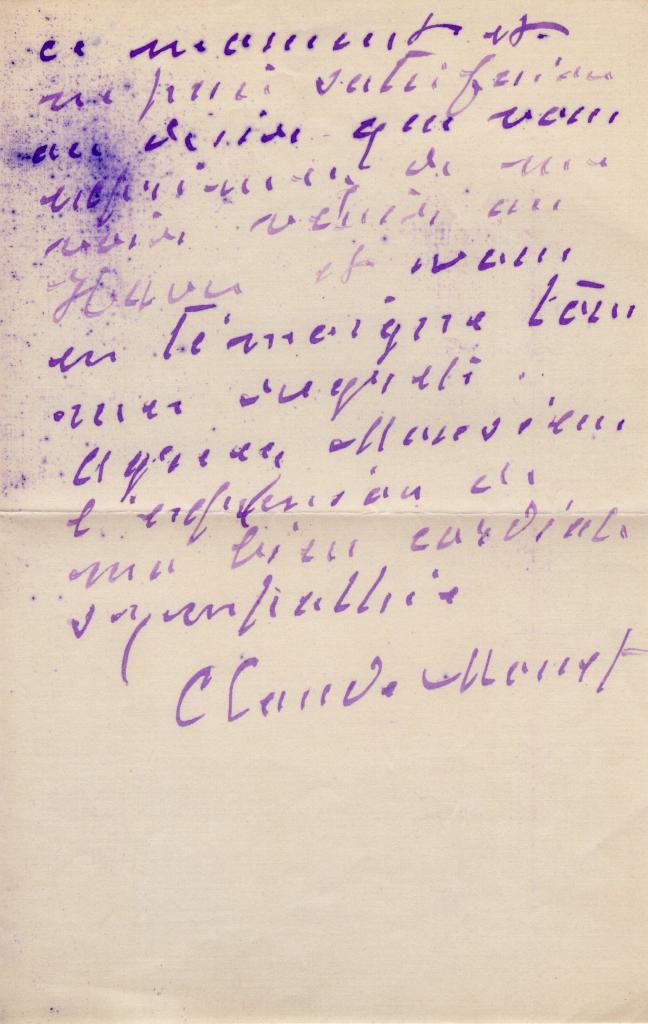 ce moment et
ne puis satisfaire
au désir que vous
exprimez de me
voir venir au
Havre et vous
en témoigne tous
mes regrets.
Agréez, Monsieur
l'expression de
ma bien cordiale
sympathie
Claude Monet